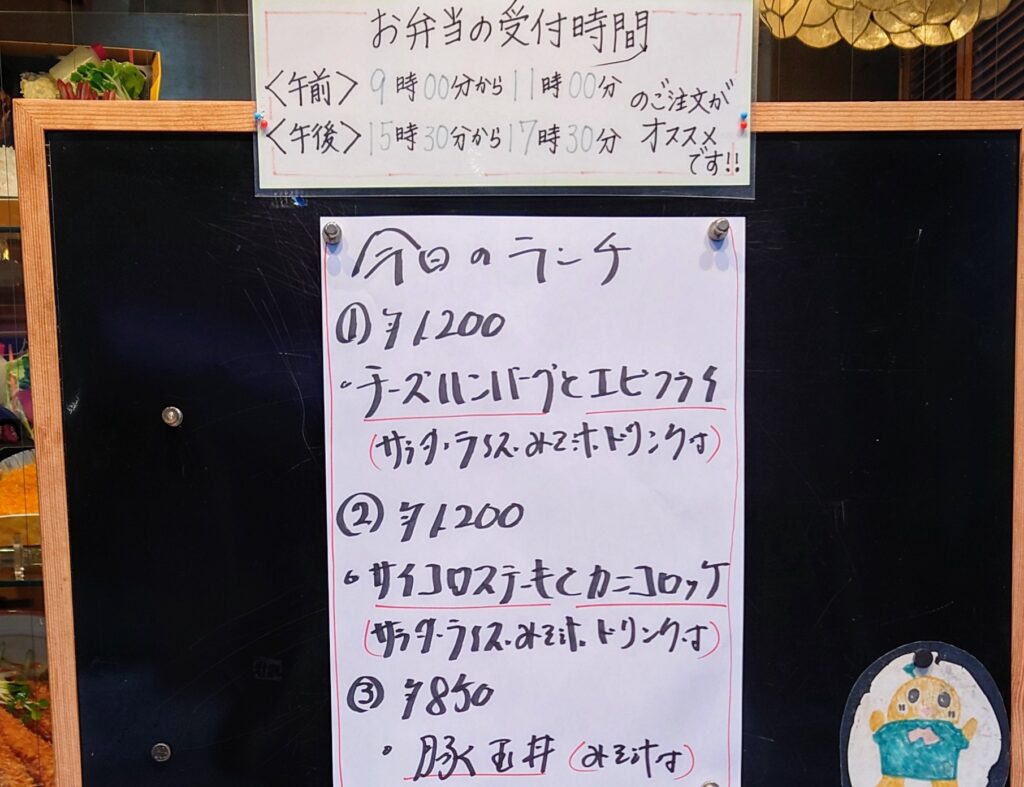 お弁当の受付時間
<午前> 9時00分から11時00分
<午後> 15時30分から17時30分
のご注文が
オススメ
です!!
今日のランチ
① ¥1,200
・チーズハンバーグとエビフライ
(サラダ・ライス・みそ汁・ドリンク付)
② ¥1,200
・サイコロステーキとカニコロッケ
(サラダ・ライス・みそ汁・ドリンク付)
③ ¥850
・豚玉丼 (みそ汁付)